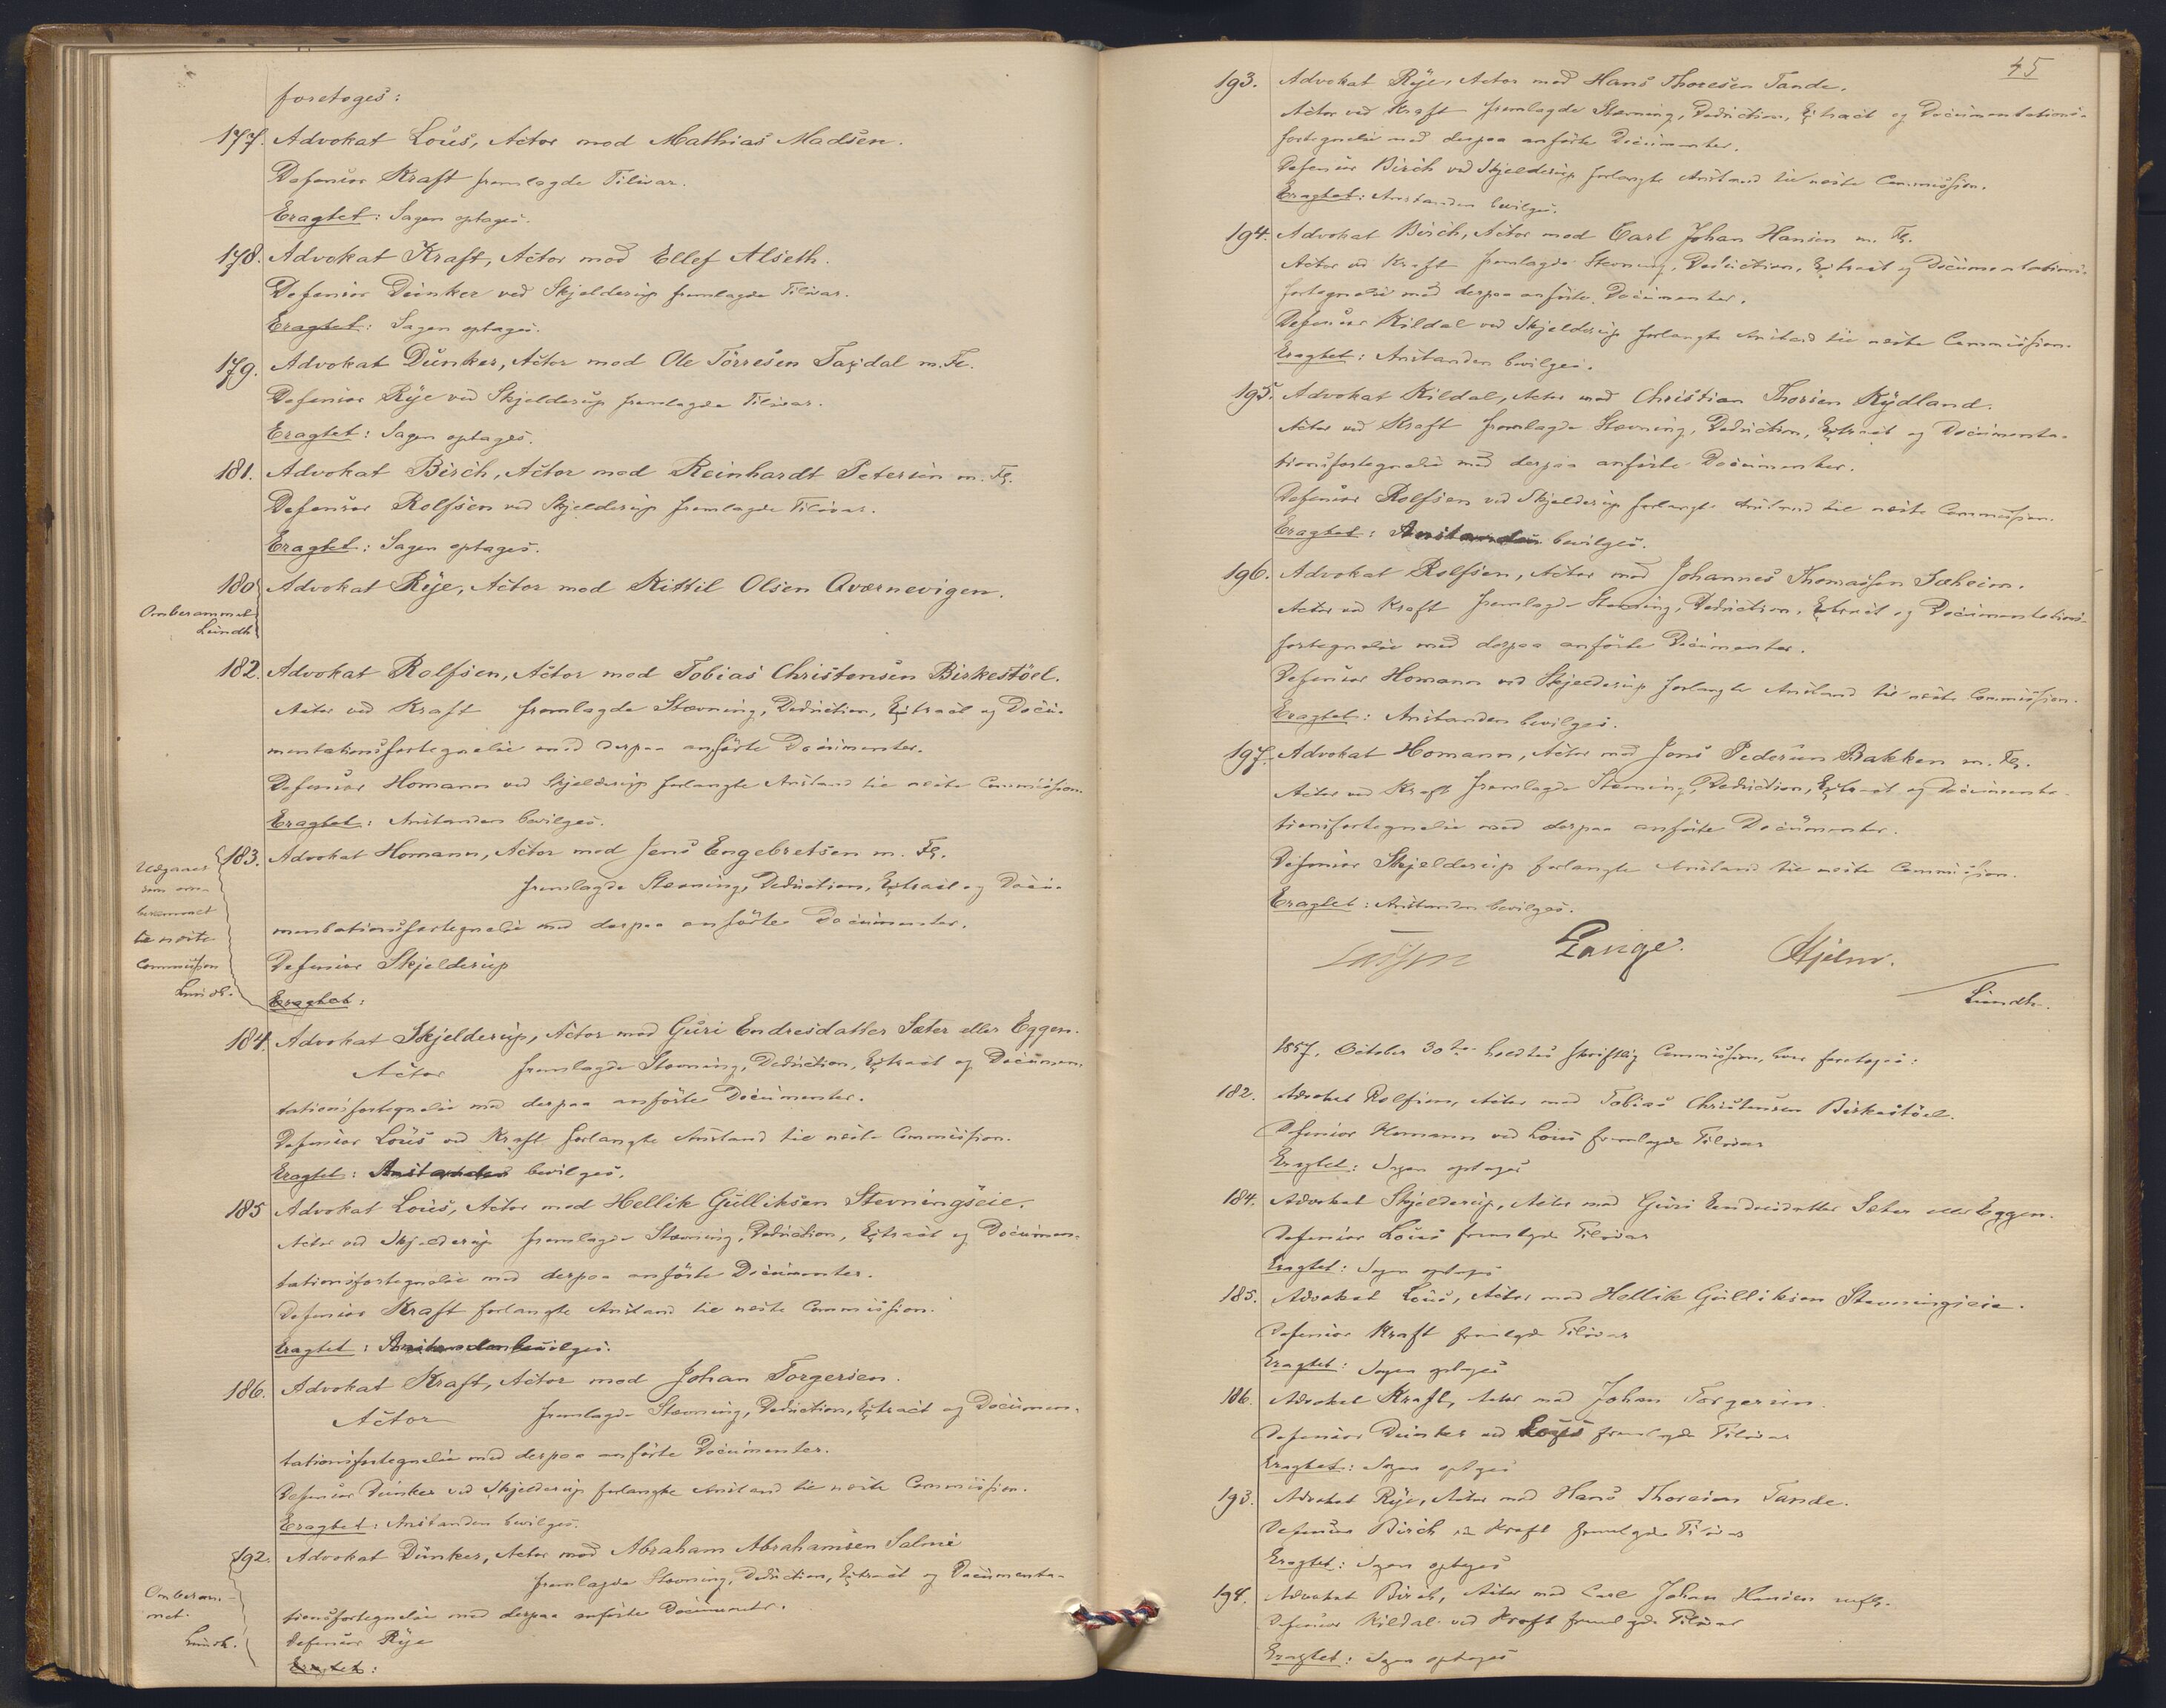 foretages:
177. Advokat Lous, Actor mod Mathias Madsen.
Defensor Kraft fremlagde Tilsvar.
Eragtet: Sagen optages.
178. Advokat Kraft, Actor mod Ellef Alseth.
Defensor Dunker ved Skjelderup fremlagde Tilsvar.
Eragtet: Sagen optages.
179. Advokat Dunker, Actor mod Ole Törresen Taxdal m. Fl.
Defensor Rye ved Skjelderup fremlagde Tilsvar.
Eragtet: Sagen optages.
181. Advokat Birch, Actor mod Reinhardt Petersen m. Fl.
Defensor Rolfsen ved Skjelderup fremlagde Tilsvar.
Eragtet: Sagen optages.
180 Advokat Rye, Actor mod Kittil Olsen Qværnevigen.
Omberammet
Lundh
182. Advokat Rolfsen, Actor mod Tobias Christensen Birkestöel.
Actor ved Kraft fremlagde Stævning, Deduction, Extract og Docu-
mentationsfortegnelse med derpaa anförte Documenter.
Defensor Homann ved Skjelderup forlangte Anstand til næste Commission.
Eragtet: Anstanden bevilges.
183. Advokat Homann, Actor mod Jens Engebretsen m. Fl.
fremlagde Stævning, Deduction, Extract og Docu-
mentationsfortegnelse med derpaa anförte Documenter.
Defensor Skjelderup
Eragtet:
Udgaaer
som om-
berammet
til næste
Commission
Lundh.
184. Advokat Skjelderup, Actor mod Guri Endresdatter Sæter eller Eggen.
Actor fremlagde Stævning, Deduction, Extract og Documen-
tationsfortegnelse med derpaa anförte Documenter.
Defensor Lous ved Kraft forlangte Anstand til næste Commission.
Eragtet: Anstanden bevilges.
185 Advokat Lous, Actor mod Hellik Gulliksen Stevningseie.
Actor ved Skjelderup fremlagde Stævning, Deduction, Extract og Documen-
tationsfortegnelse med derpaa anförte Documenter.
Defensor Kraft forlangte Anstand til næste Commission.
Eragtet: Anstanden bevilges.
186. Advokat Kraft, Actor mod Johan Torgersen.
Actor fremlagde Stævning, Deduction, Extract og Documen-
tationsfortegnelse med derpaa anförte Documenter.
Defensor Dunker ved Skjelderup forlangte Anstand til næste Commission.
Eragtet: Anstanden bevilges.
192. Advokat Dunker, Actor mod Abraham Abrahamsen Salme
fremlagde Stævning, Deduction, Extract og Documenta-
tionsfortegnelse med derpaa anförte Documenter.
Defensor Rye
Eragtet:
Omberam-
met.
Lundh.
45
193. Advokat Rye, Actor mod Hans Thoresen Tande.
Actor ved Kraft fremlagde Stævning, Deduction, Extract og Documentations-
fortegnelse med derpaa anförte Documenter.
Defensor Birch ved Skjelderup forlangte Anstand til næste Commission.
Eragtet: Anstanden bevilges.
194. Advokat Birch, Actor mod Carl Johan Hansen m. Fl.
Actor ved Kraft fremlagde Stævning, Deduction, Extract og Documentations-
fortegnelse med derpaa anförte Documenter.
Defensor Kildal ved Skjelderup forlangte Anstand til næste Commission.
Eragtet: Anstanden bevilges.
195. Advokat Kildal, Actor mod Christian Thorsen Rydland.
Actor ved Kraft fremlagde Stævning, Deduction, Extract og Documenta-
tionsfortegnelse med derpaa anförte Documenter.
Defensor Rolfsen ved Skjelderup forlangte Anstand til næste Commission.
Eragtet: Anstanden bevilges.
196. Advokat Rolfsen, Actor mod Johannes Thomassen Sæheim.
Actor ved Kraft fremlagde Stævning, Deduction, Extract og Documentations-
fortegnelse med derpaa anförte Documenter.
Defensor Homann ved Skjelderup forlangte Anstand til næste Commission.
Eragtet: Anstanden bevilges.
197. Advokat Homann, Actor mod Jens Pedersen Bakken m. Fl.
Actor ved Kraft fremlagde Stævning, Deduction, Extract og Documenta-
tionsfortegnelse med derpaa anförte Documenter.
Defensor Skjelderup forlangte Anstand til næste Commission.
Eragtet: Anstanden bevilges.
Lange. Hjelm.
Lundh.
1857, October 30te holdtes skriftlig Commission, hvor foretoges:
182. Advokat Rolfsen, Actor mod Tobias Christensen Birkestöel.
Defensor Homann ved Lous fremlagde Tilsvar
Eragtet: Sagen optages
184. Advokat Skjelderup, Actor mod Guri Endresdatter Sæter eller Eggen.
Defensor Lous fremlagde Tilsvar
Eragtet: Sagen optages
185. Advokat Lous, Actor mod Hellik Gulliksen Stevningseie.
Defensor Kraft fremlagde Tilsvar
Eragtet: Sagen optages
186. Advokat Kraft, Actor mod Johan Torgersen.
Defensor Dunker ved Lous fremlagde Tilsvar
Eragtet: Sagen optages
193. Advokat Rye, Actor mod Hans Thoresen Tande.
Defensor Birch ved Kraft fremlagde Tilsvar
Eragtet: Sagen optages
194. Advokat Birch, Actor mod Carl Johan Hansen m. Fl.
Defensor Kildal ved Kraft fremlagde Tilsvar
Eragtet: Sagen optages